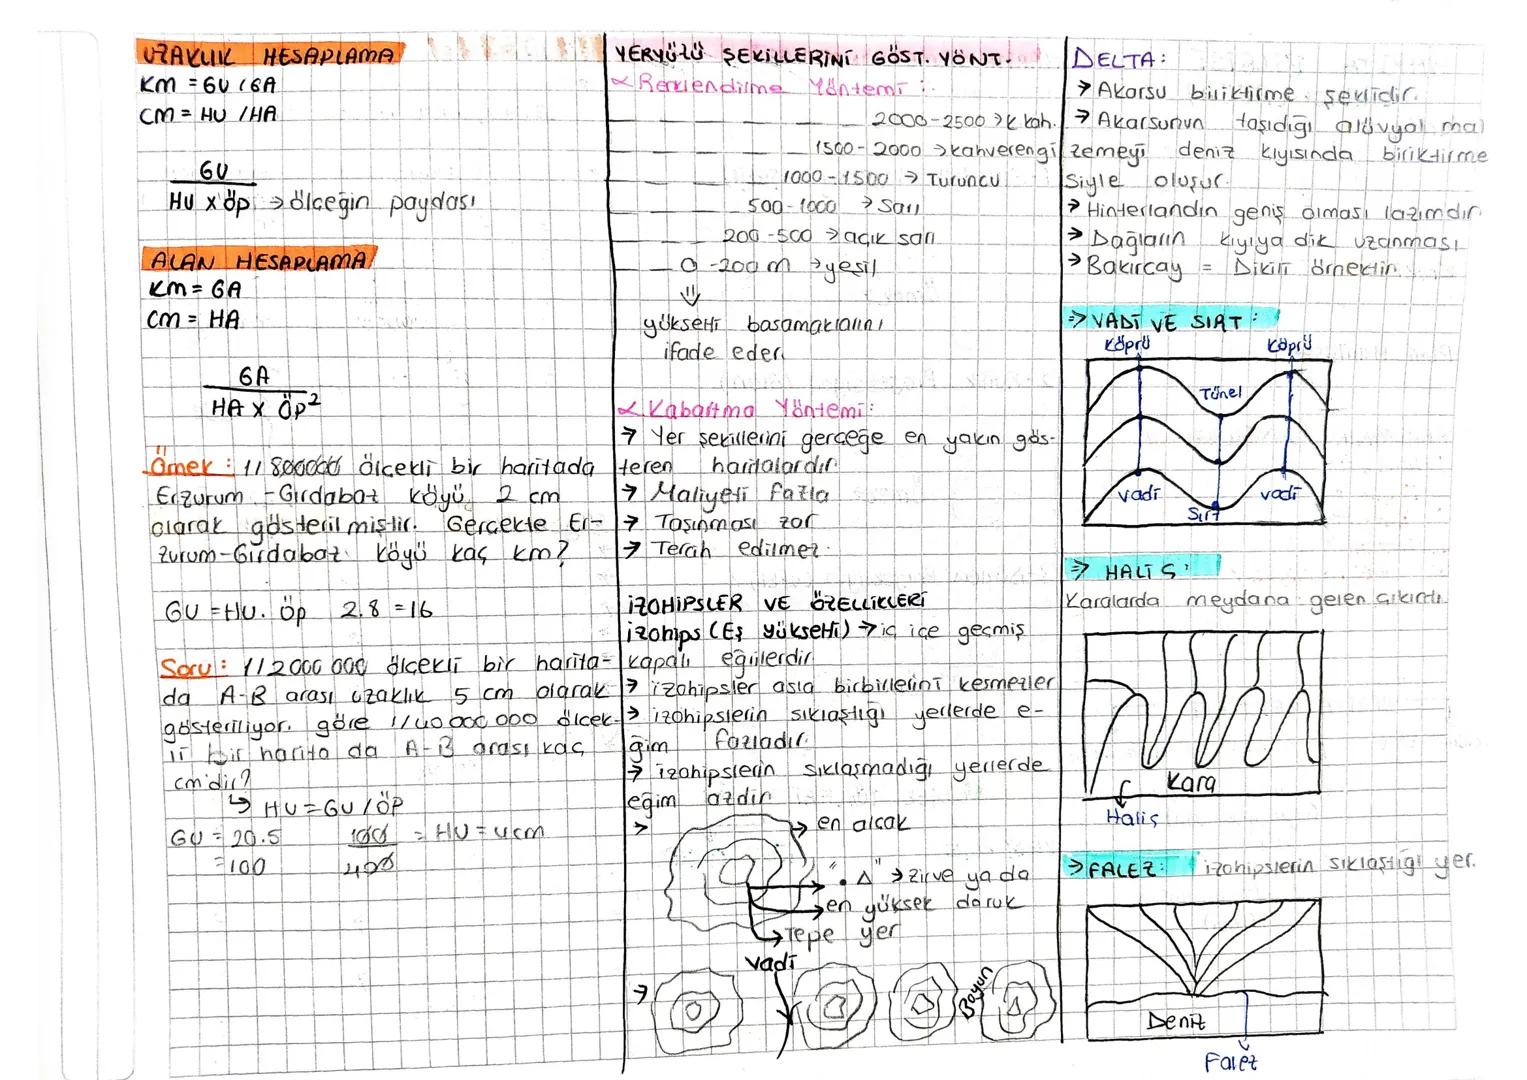 UZAKLIK HESAPLAMA
KM = GU / GA
CM = HU / HA
GU
HU x öp → ölçeğin paydası
ALAN HESAPLAMA
KM = GA
CM = HA
GA
HA x Öp²
Örnek : 1/800000 ölçekli bir haritada
Erzurum - Girdabat köyü 2 cm
olarak gösterilmiştir. Gerçekte Er-
zurum-Girdabat köyü kaç km?
GU = HU. Öp 2.8 = 16
Soru : 1/2000 000 ölçekli bir harita-
da A-B arası uzaklık 5 cm olarak
gösteriliyor. göre 1/40.000.000 ölçek-
li bir harita da A-B arası kaç
cm'dir?
↳ HU = GU / ÖP
GU = 20.5
= 100
100
400
= HU = 4cm
YERYÜZÜ ŞEKİLLERİNİ GÖST. YÖNT.
Renklendirme Yöntemi :
2000-2500 → k kah.
1500-2000 → kahverengi
1000-1500 → Turuncu
500-1000 → Sarı
200-500 → açık sarı
0-200 m → yeşil
⇓
yükselti basamaklarını
ifade eder.
Kabartma Yöntemi :
→ Yer şekillerini gerçeğe en yakın gös-
teren haritalardır.
→ Maliyeti fazla
→ Taşınması zor
→ Tercih edilmez.
İZOHİPSLER VE ÖZELLİKLERİ
izohips (Eş yükselti) → iç içe geçmiş
kapalı eğrilerdir.
→ izohipsler asla birbirlerini kesmezler
→ izohipslerin sıklaştığı yerlerde e-
ğim fazladır.
→ izohipslerin sıklaşmadığı yerlerde
eğim azdır.
→ en alçak
"• Δ" → zirve ya da
→ en yüksek doruk
→ Tepe yer
vadi
Boyun
DELTA :
→ Akarsu biriktirme şeklidir.
→ Akarsunun taşıdığı alüvyal mal
zemeyi deniz kıyısında biriktirme
siyle oluşur.
→ Hinterlandın geniş olması lazımdır
→ Dağların kıyıya dik uzanması
→ Bakırçay = Dikili örnektir.
⇒ VADİ VE SIRT :
Köprü Köprü
Tünel
vadi vadi
Sırt
⇒ HALİÇ :
Karalarda meydana gelen çıkıntı
Kara
Haliç
→ FALEZ : izohipslerin sıklaştığı yer.
Deniz
Falez